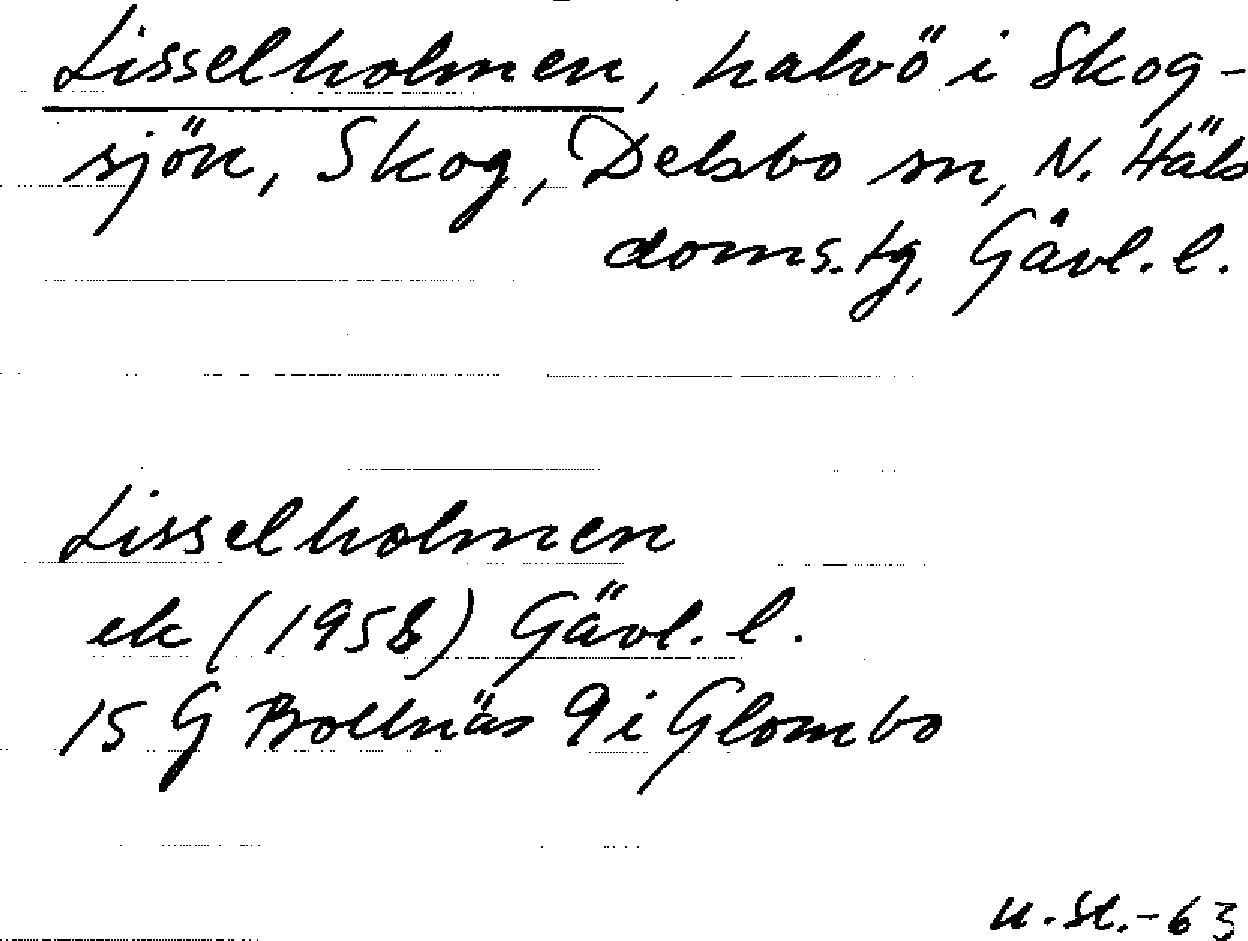 Lisselholmen, halvö i Skog-
sjön, Skog, Delsbo sn, N. Häls
doms.tg, Gävl. l.
Lisselholmen
ek (1958) Gävl. l.
15 G Bollnäs 9 i Glombo
U. St. -63